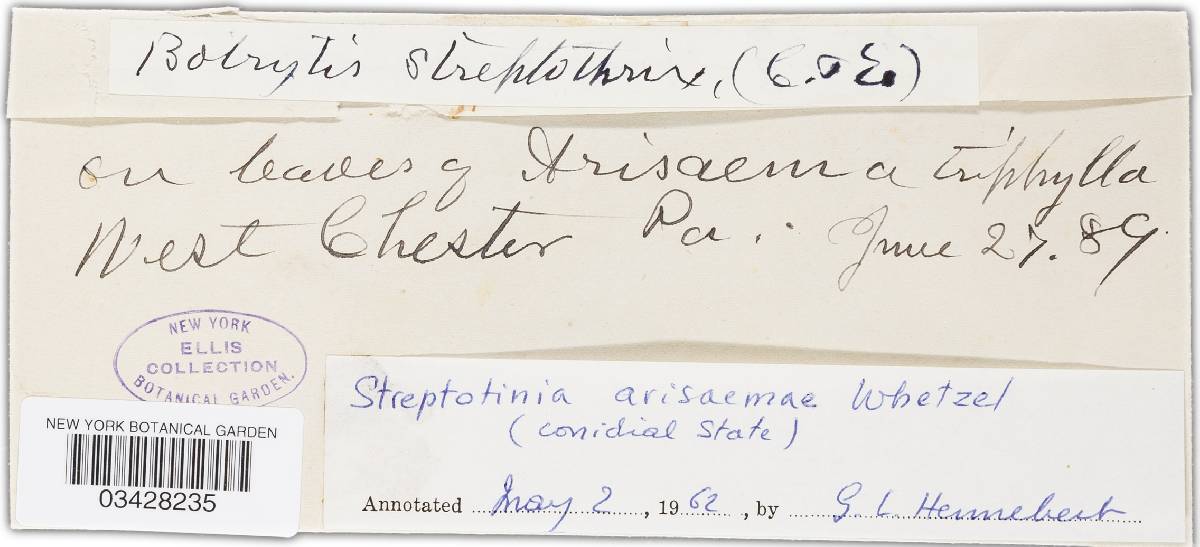 Botrytis streptothrix, (C. & E.)
on leaves of Arisaema triphylla
West Chester Pa. June 27. 89
NEW YORK
ELLIS
COLLECTION
BOTANICAL GARDEN.
Streptotinia arisaemae Whetzel
(conidial State)
NEW YORK BOTANICAL GARDEN
03428235
Annotated May 2, 1962, by G. L. Hennebert